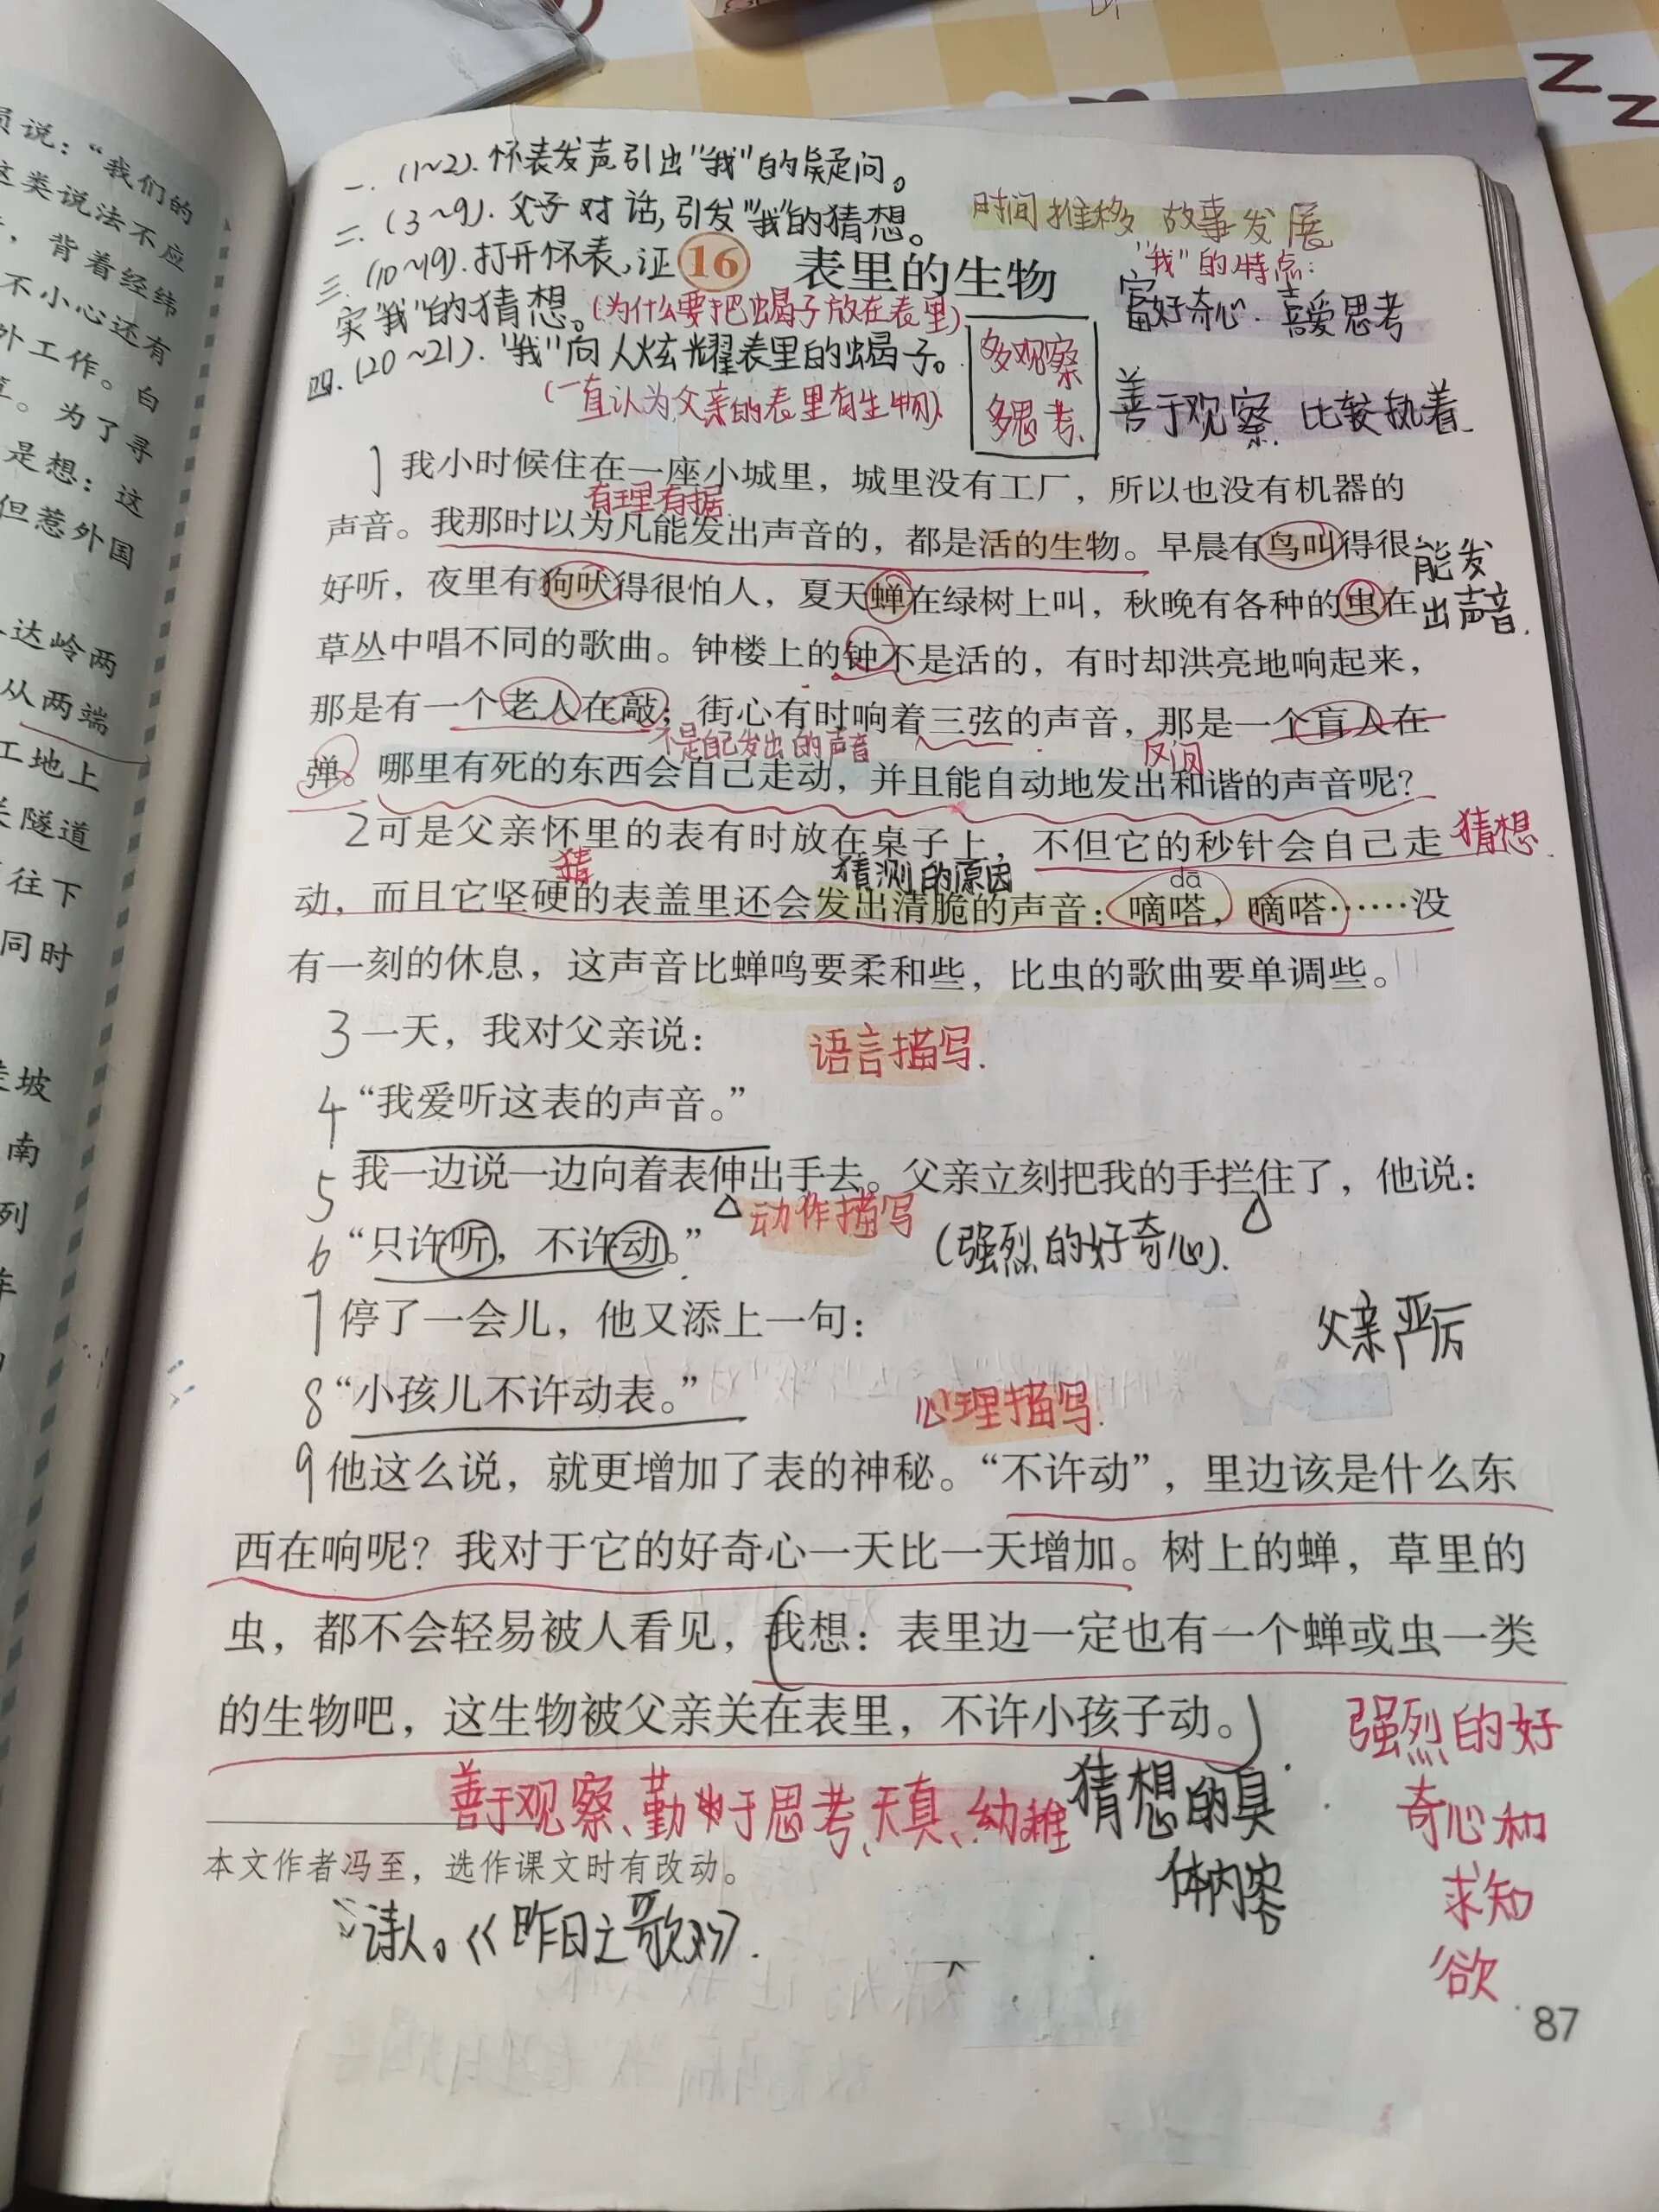 员说：“我们的
这类说法不应
，背着经纬
不小心还有
外工作。白
。为了寻
是想：这
但惹外国
达岭两
从两端
工地上
隧道
往下
同时
坡
南
列
一、(1~2).怀表发声引出“我”的疑问。
二、(3~9).父子对话,引发“我”的猜想。
三、(10~19).打开怀表,证
实“我”的猜想。(为什么要把蝎子放在表里)
四.(20~21).“我”向人炫耀表里的蝎子。
(一直认为父亲的表里有生物)
16 表里的生物
时间推移 故事发展
“我”的特点:
富好奇心.喜爱思考
善于观察 比较执着
多观察
多思考
1我小时候住在一座小城里，城里没有工厂，所以也没有机器的
有理有据
声音。我那时以为凡能发出声音的，都是活的生物。早晨有鸟叫得很
能发
好听，夜里有狗吠得很怕人，夏天蝉在绿树上叫，秋晚有各种的虫在
出声音.
草丛中唱不同的歌曲。钟楼上的钟不是活的，有时却洪亮地响起来，
那是有一个老人在敲；街心有时响着三弦的声音，那是一个盲人在
不是自己发出的声音
反问
弹。哪里有死的东西会自己走动，并且能自动地发出和谐的声音呢？
2可是父亲怀里的表有时放在桌子上，不但它的秒针会自己走
猜想
猜
猜测的原因
dā
动，而且它坚硬的表盖里还会发出清脆的声音：嘀嗒，嘀嗒……没
有一刻的休息，这声音比蝉鸣要柔和些，比虫的歌曲要单调些。
3一天，我对父亲说：
语言描写.
4“我爱听这表的声音。”
5我一边说一边向着表伸出手去。父亲立刻把我的手拦住了，他说：
动作描写
6“只许听，不许动。”
(强烈的好奇心).
7停了一会儿，他又添上一句：
父亲严厉
8“小孩儿不许动表。”
心理描写.
9他这么说，就更增加了表的神秘。“不许动”，里边该是什么东
西在响呢？我对于它的好奇心一天比一天增加。树上的蝉，草里的
虫，都不会轻易被人看见，我想：表里边一定也有一个蝉或虫一类
的生物吧，这生物被父亲关在表里，不许小孩子动。
强烈的好
奇心和
求知
欲
善于观察、勤于思考、天真、幼稚
猜想的具
体内容
本文作者冯至，选作课文时有改动。
诗人。《昨日之歌》.
87